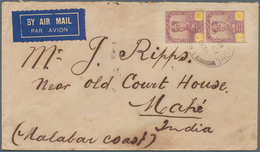 BY AIR MAIL
PAR AVION
Mr J. Ripps.
Near old Court House.
Mahé
India
(Malabar coast)